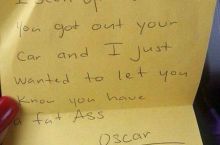 You got out your
car and I just
wanted to let you
know you have
a fat Ass
Oscar